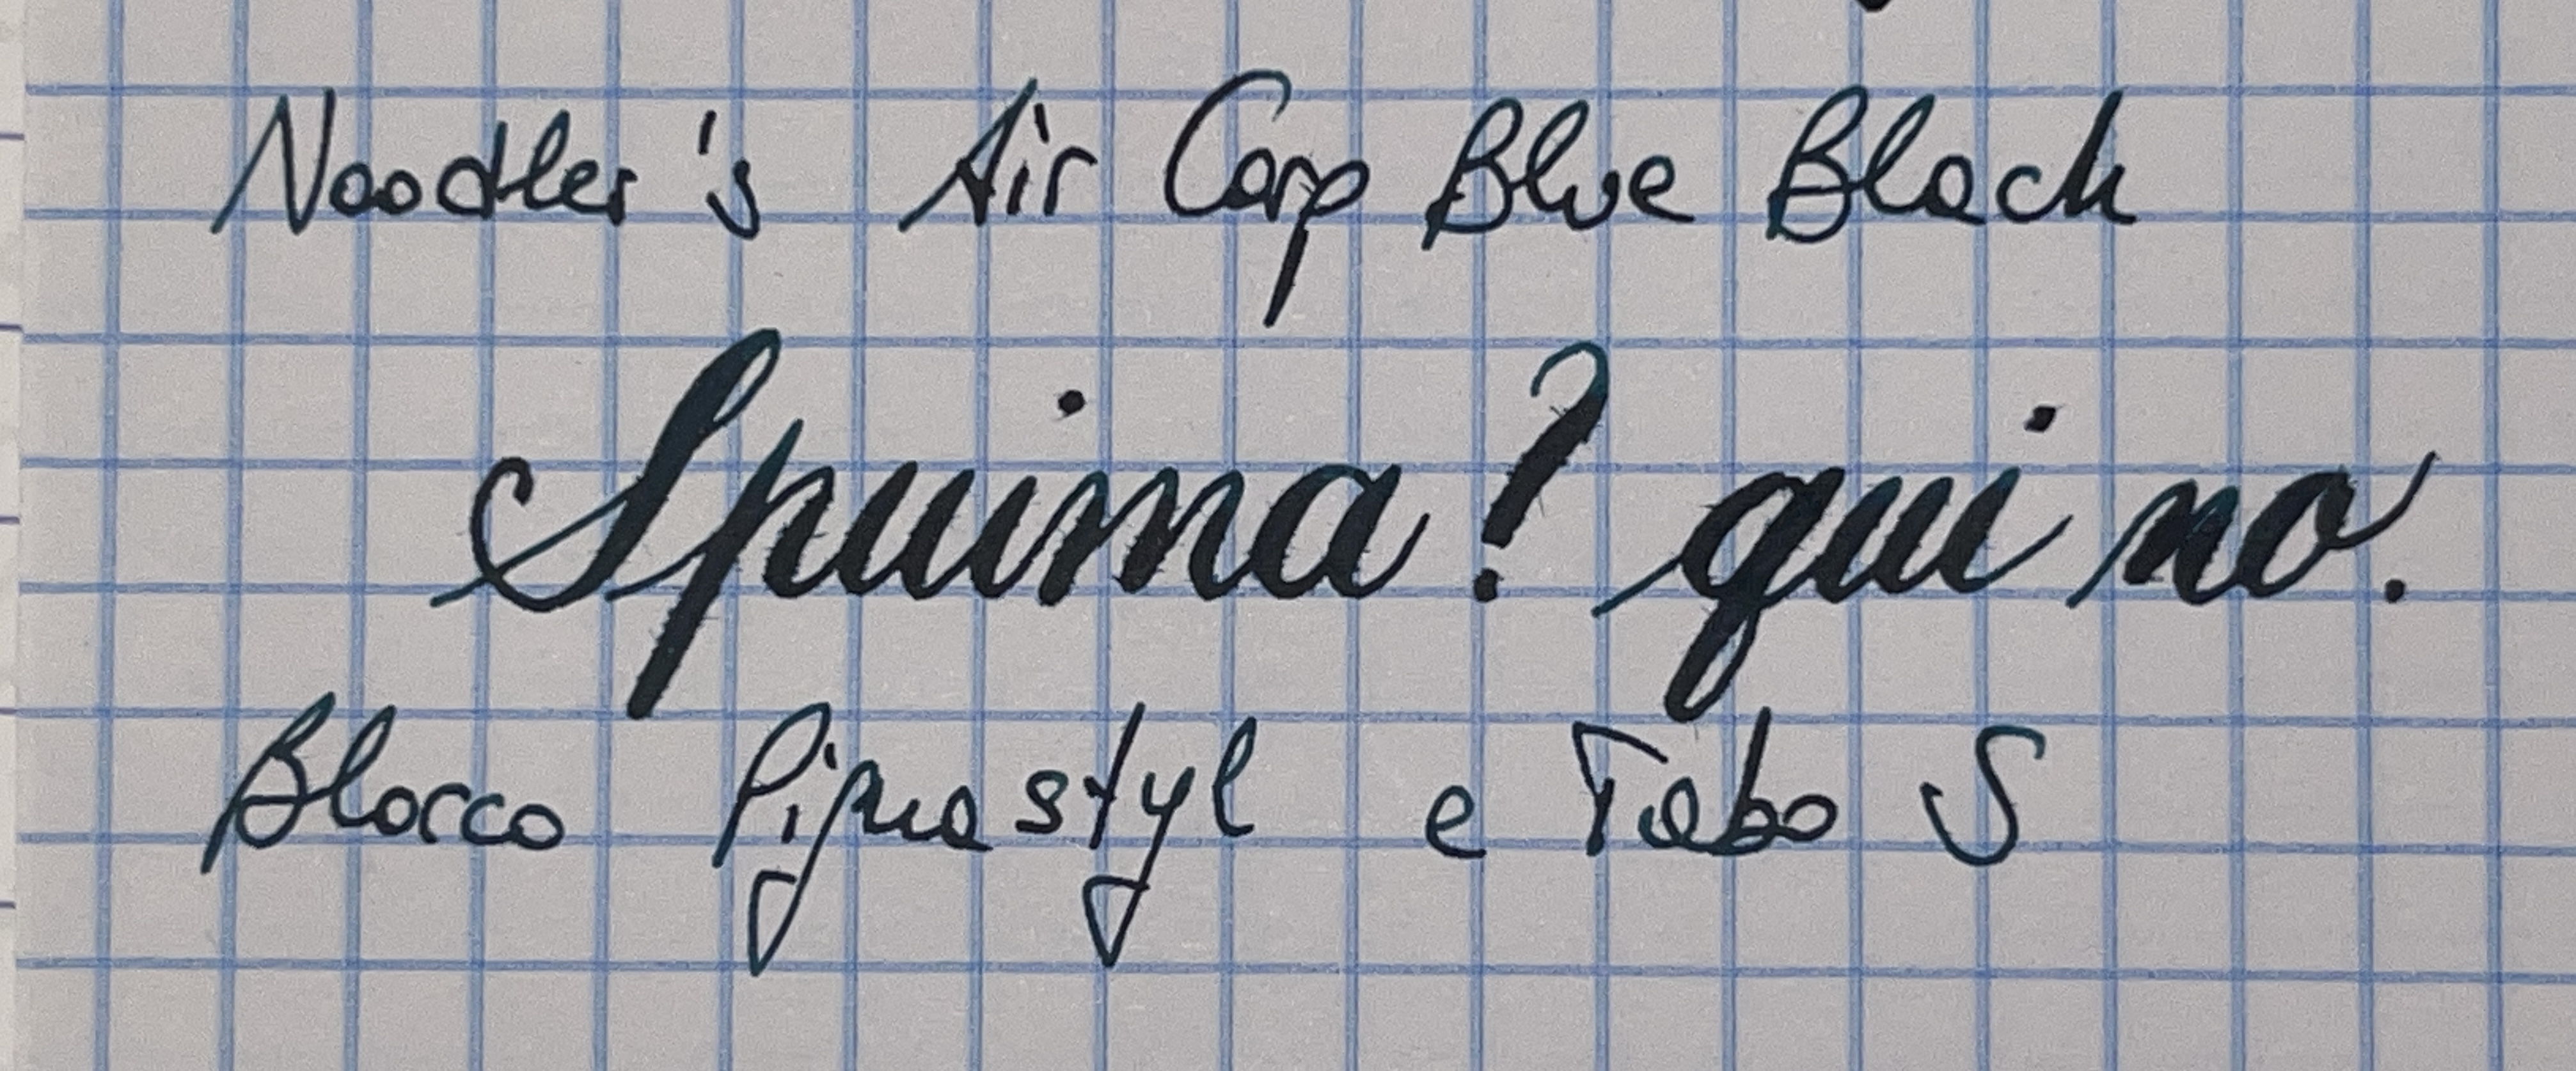 Noodler's Air Corp Blue Black
Spuima? qui no.
Blocco Pignastyl e Tabo S